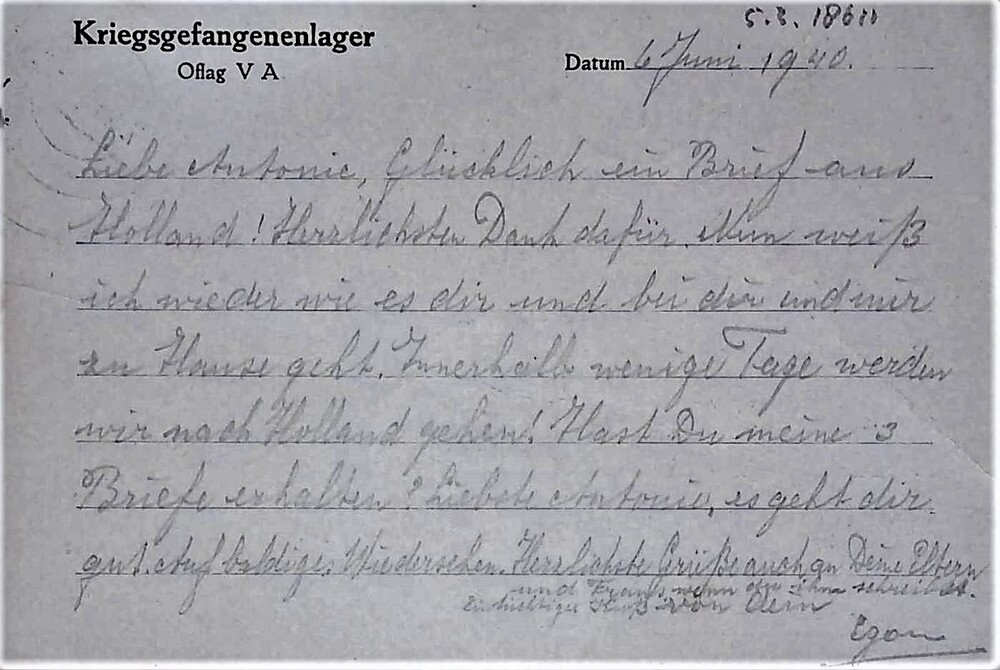 5.3. 18611
Kriegsgefangenenlager
Oflag V A
Datum 6 Juni 1940.
Liebe Antonie, Glücklich ein Brief aus
Holland! Herrlichsten Dank dafür. Nun weiß
ich wieder wie es dir und bei dir und mir
zu Hause geht. Innerhalb wenige Tage werden
wir nach Holland gehen! Hast Du meine 3
Briefe erhalten? Liebste Antonie, es geht dir
gut. Auf baldiges Wiedersehen. Herrlichste Grüße auch an Deine Eltern
und wenn ihm schreibst.
von dem
Egon